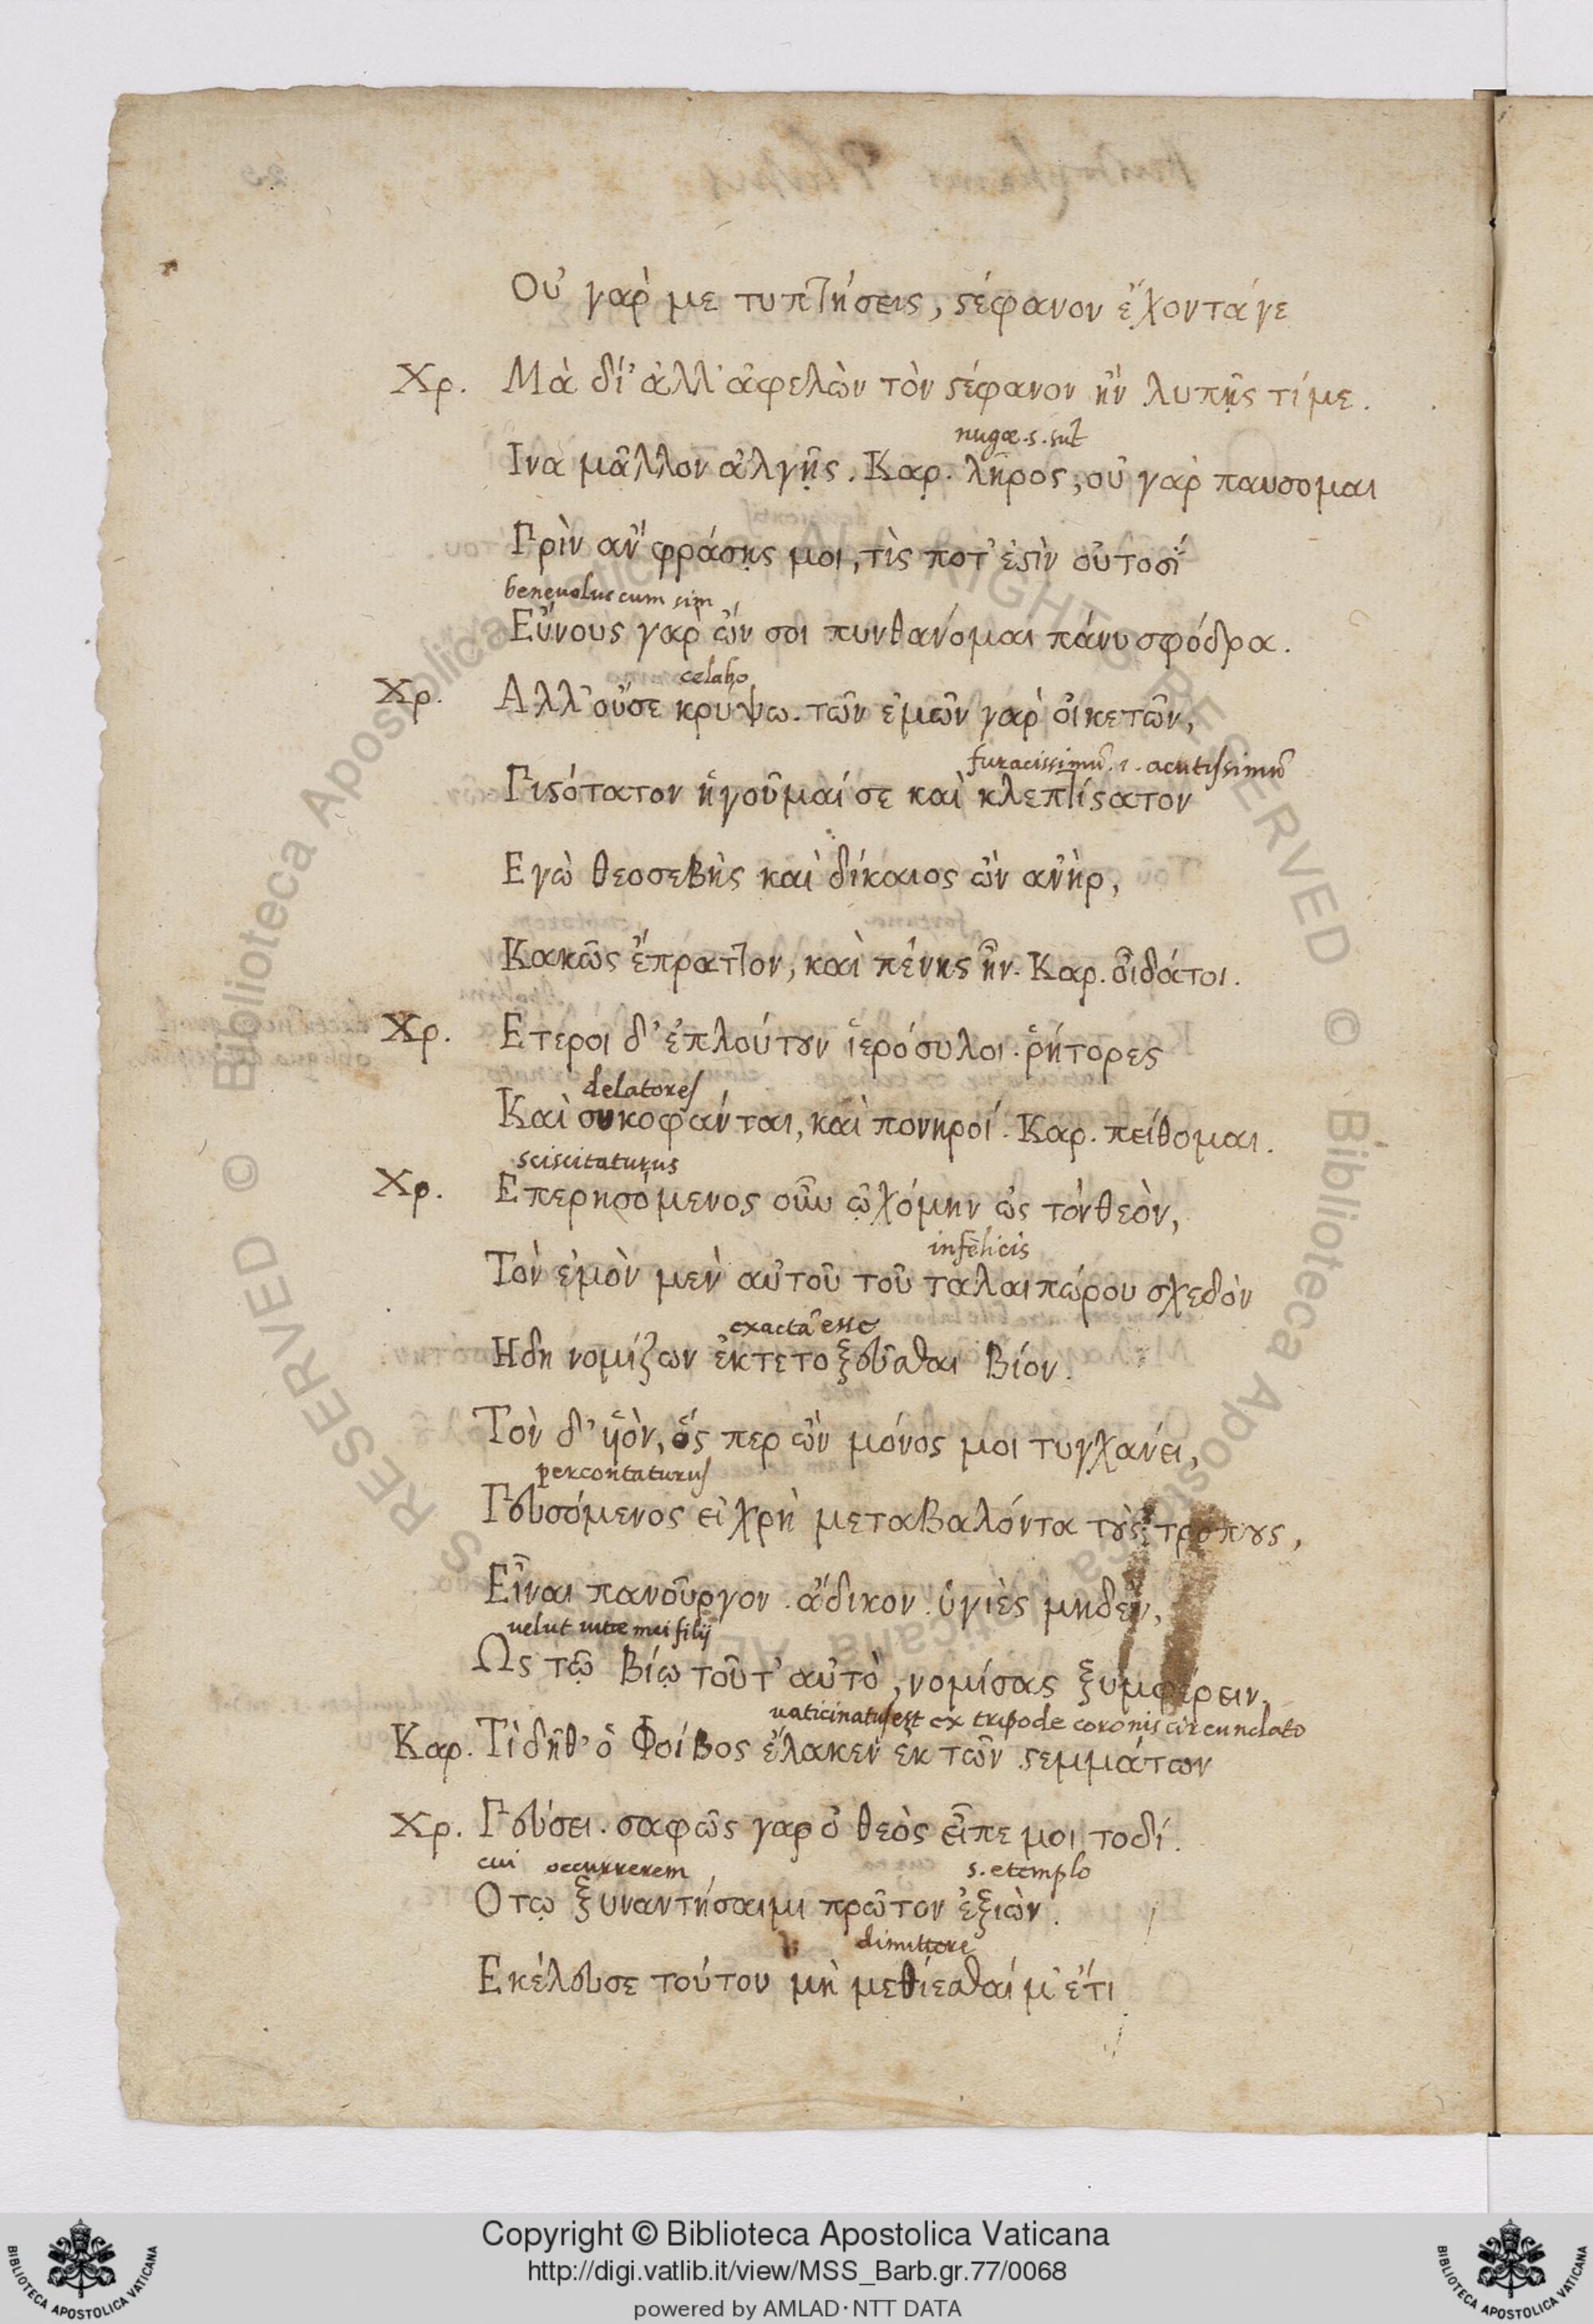 Οὐ γαρ̀ με τυπτήσεις, στέφανον ἔχοντάγε
Χρ. Μὰ δί' ἀλλ' ἀφελὼν τὸν στέφανον ἢν λυπῇς τίμε.
nugæ .s. sūt
Ινα μᾶλλον ἀλγῇς. Καρ. λῆρος, οὐ γαρ̀ παυσομαι
Πρὶν ἀν φράσῃς μοι, τὶς ποτ' ἐστὶν οὑτοσί
benevolus cum sim
Εὔνους γαρ̀ ὤν σοι πυνθανόμαι πάνυ σφόδρα.
celabo
Χρ. Αλλ' οὔσε κρύψω. τῶν ἐμῶν γαρ̀ οἰκετῶν,
furacissimū .i. acutissimū
Πιστότατον ἡγοῦμαί σε καὶ κλεπτίστατον
Εγὼ θεοσεβὴς καὶ δίκαιος ὢν ανὴρ,
Κακῶς ἔπραττον, καὶ πένης ἦν. Καρ. οἶδάτοι.
Χρ. Ετεροι δ' ἐπλούτουν ἱερόσυλοι. ῥήτορες
delatores
Καὶ συκοφάνται, καὶ πονηροί. Καρ. πείθομαι.
sciscitaturus
Χρ. Επερησόμενος οὖν ᾠχόμην ὡς τόνθεὸν,
infelicis
Τὸν ἐμὸν μεν̀ αὐτοῦ τοῦ ταλαιπώρου σχεδὸν
exactā esse
Ηδη νομίζων ἐκτετοξεῦσθαι βίον.
Τὸν δ' ὑὸν, ὅς περ ὢν μόνος μοι τυγχανει,
percontaturus
Πευσόμενος εἰ χρὴ μεταβαλόντα τοὺς τρόπους,
Εἶναι πανοῦργον. ἄδικον. ὑγιὲς μηδεν,
velut vitæ mei filij
Ως τῷ βίῳ τοῦτ' αὐτὸ, νομίσας ξυμφέρειν.
vaticinatus est ex tripode coronis circundato
Καρ. Τὶ δῆθ' ὁ Φοίβος ἔλακεν ἐκ τῶν στεμμάτων
Χρ. Πεύσει. σαφῶς γαρ ὁ θεὸς εἶπε μοι τοδί.
cui occurrerem s. e templo
Οτῳ ξυναντήσαιμι πρῶτον ἐξιὼν.
dimittere
Εκέλευσε τούτου μὴ μεθίεσθαί μ' ἔτι
Copyright © Biblioteca Apostolica Vaticana
http://digi.vatlib.it/view/MSS_Barb.gr.77/0068
powered by AMLAD·NTT DATA